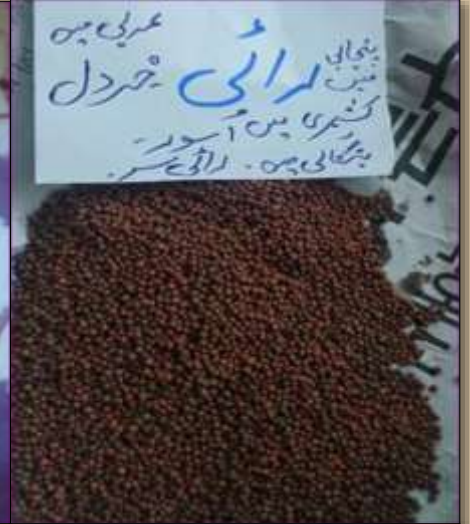 عربی میں
پنجابی میں رائی خردل
کشمیری میں آسور۔
بنگالی میں۔ رائی سر۔